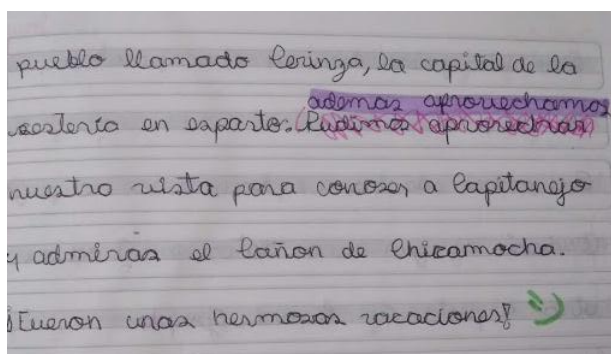 pueblo llamado Cerinza, la capital de la
ademas aprovechamos
cestería en esparto. (Pudimos aprovechar)
nuestro vista para conocer a Capitanejo
y admirar el Cañon de Chicamocha.
¡Fueron unas hermosas vacaciones!